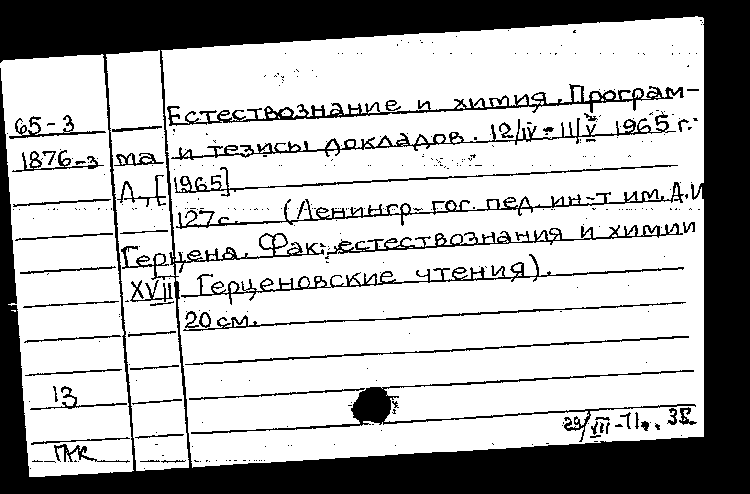 65-3
Естествознание и химия. Програм-
1876-3
ма и тезисы докладов. 12/IV-11/V 1965 г.
Л., [1965].
127с. (Ленингр. гос. пед. ин-т им. А.И
Герцена. Фак. естествознания и химии
XVIII Герценовские чтения).
20 см.
13
23/VII-71.